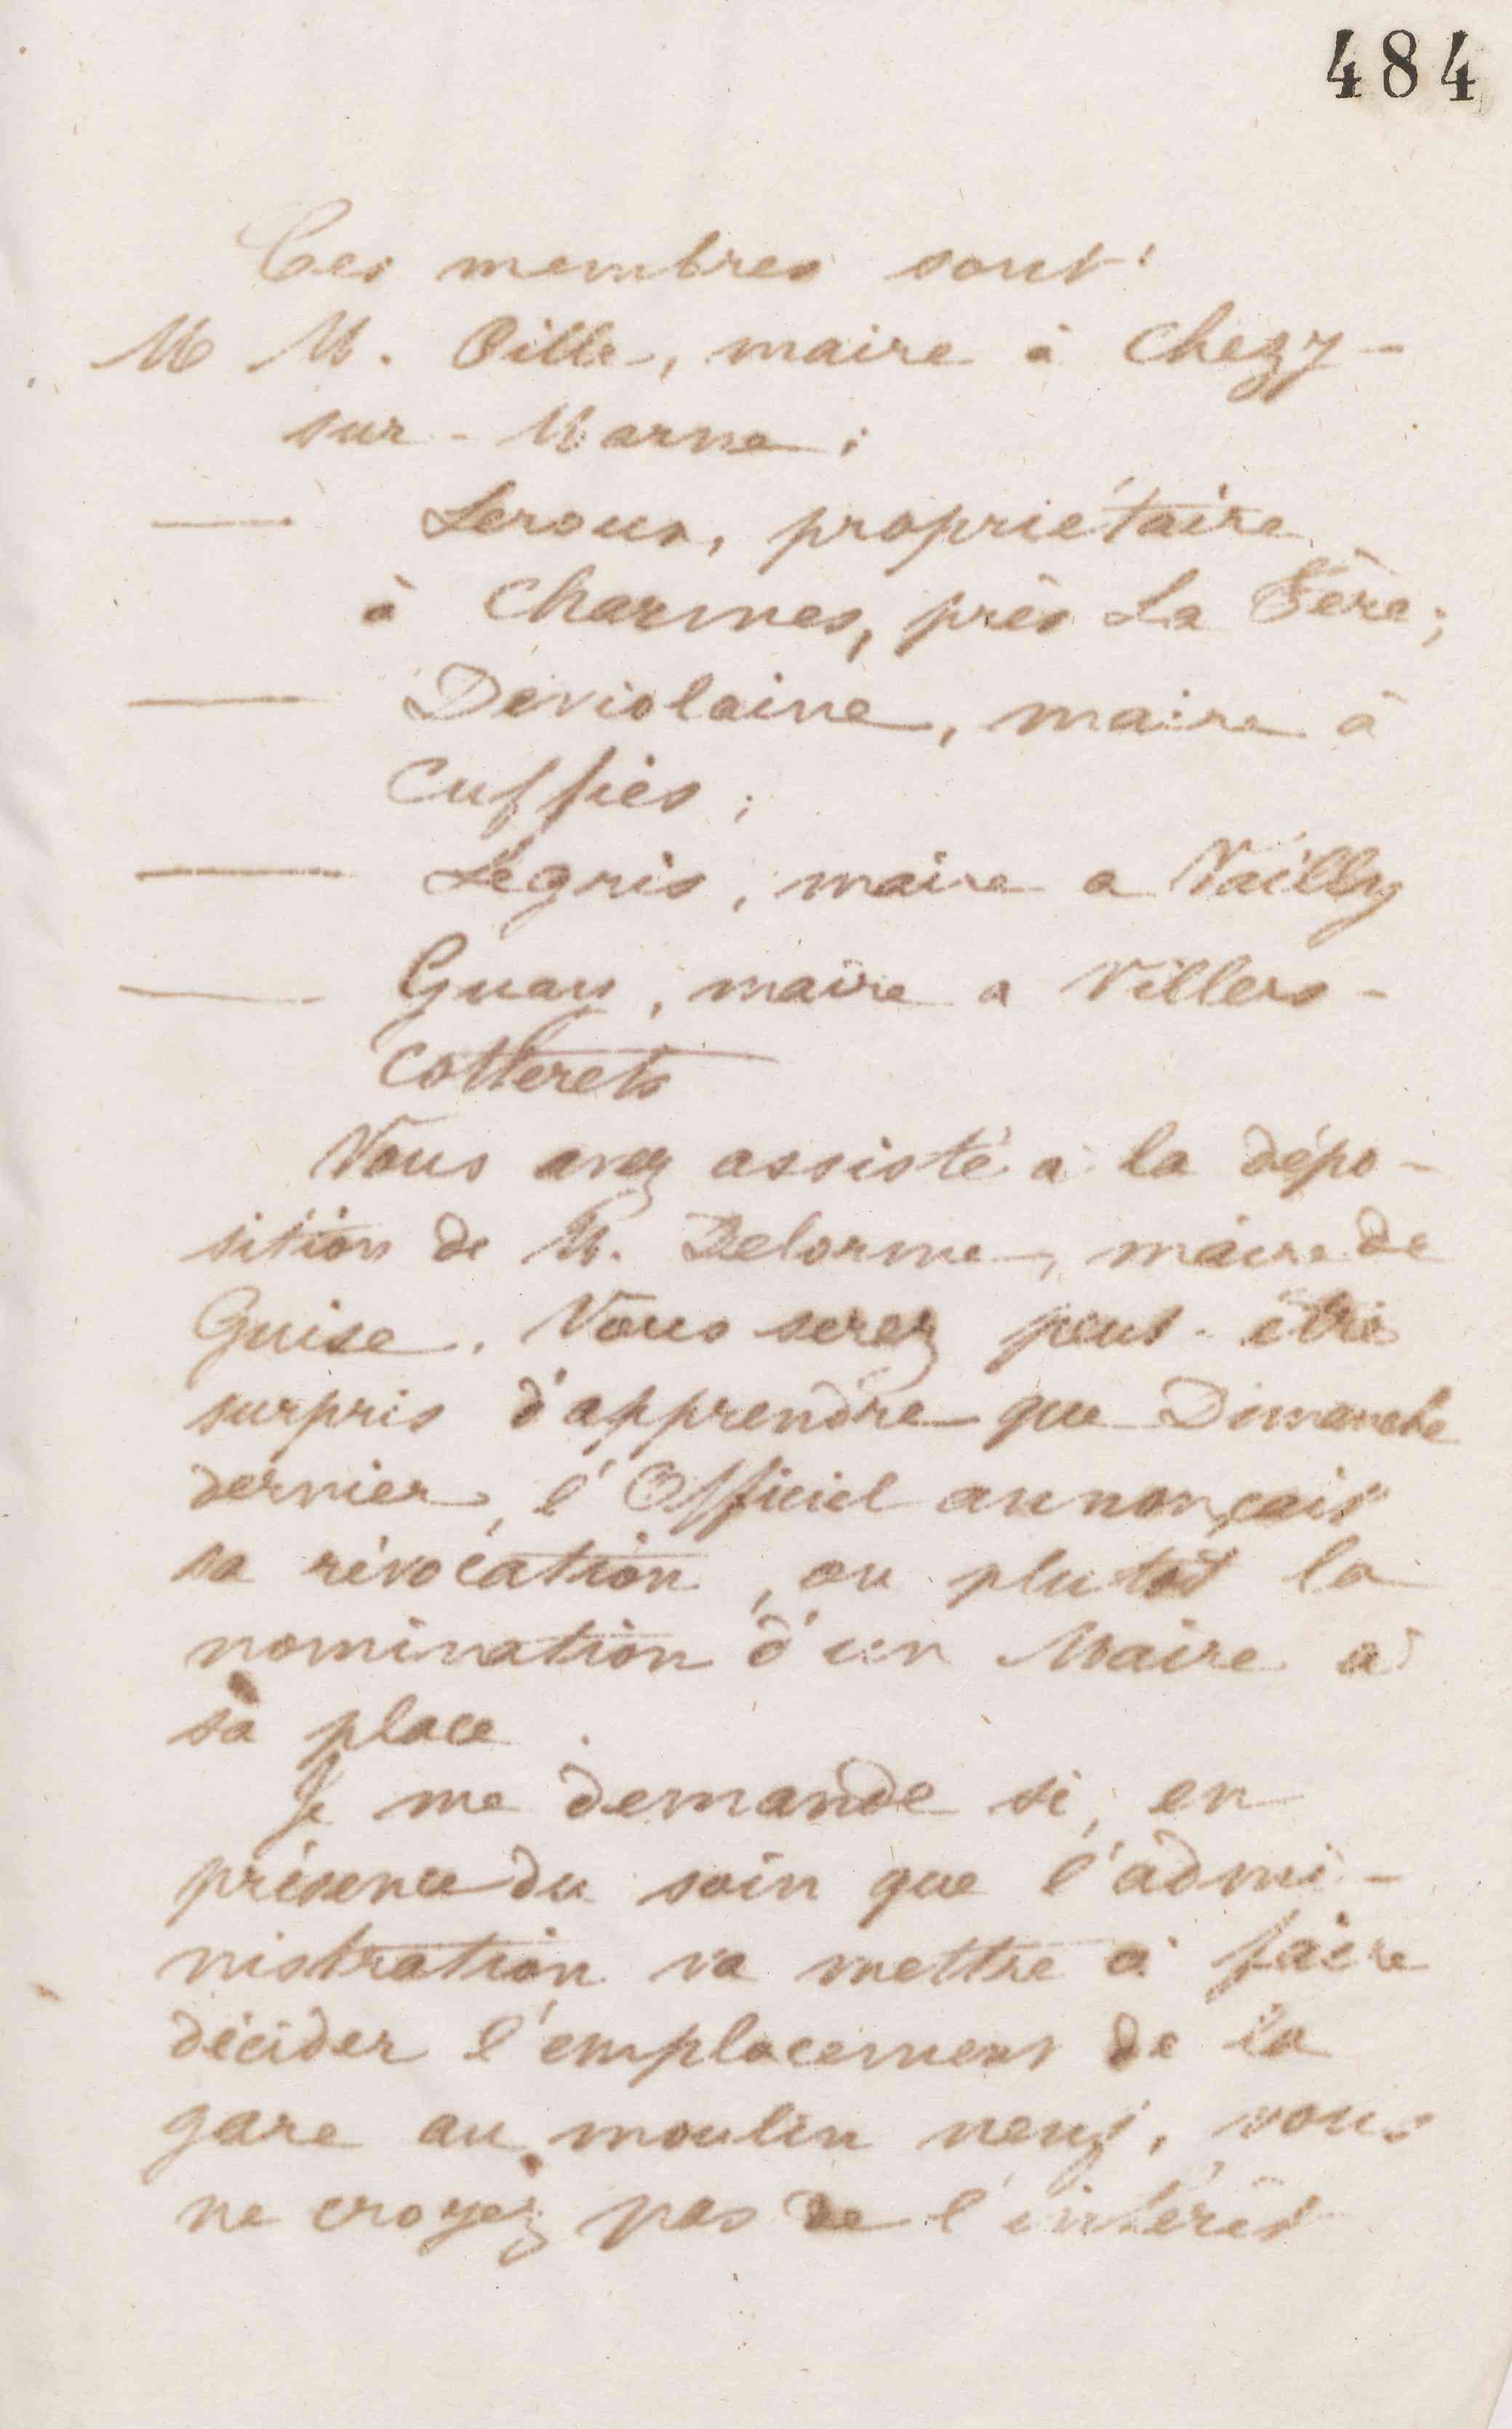 484
Ces membres sont :
M M. Bille, maire à Chezy-
sur-Marne ;
— Leroux, propriétaire
à Charmes, près La Fère ;
— Deviolaine, maire à
Cuffies ;
— Legris, maire a Vailly
— Guay, maire a Villers-
Cotterets
Vous avez assisté à la dépo-
sition de M. Delorme, maire de
Guise. Vous serez peut-être
surpris d'apprendre que Dimanche
dernier, l'Officiel annonçait
sa révocation, ou plutôt la
nomination d'un Maire à
sa place.
Je me demande si, en
présence du soin que l'admi-
nistration va mettre à faire
décider l'emplacement de la
gare au moulin neuf, vous
ne croyez pas de l'intérêt